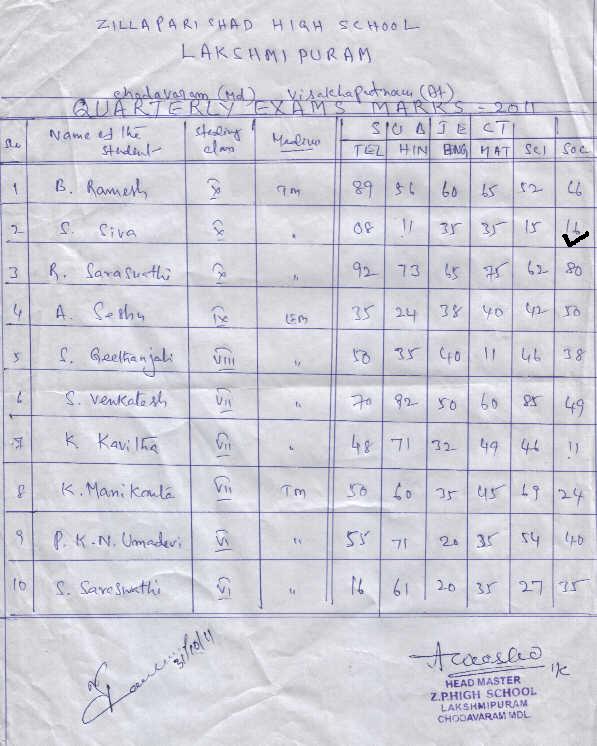 ZILLAPARISHAD HIGH SCHOOL
LAKSHMIPURAM
Chodavaram (Md) Visakhapatnam (Dt)
QUARTERLY EXAMS MARKS - 2011
SUBJECT
Name of the student Studing class Medium TEL HIN ENG MAT SCI SOC
1 B. Ramesh X TM 89 56 60 65 52 66
2 S. Siva X " 08 11 35 35 15 16
3 R. Saraswathi X " 92 73 65 75 62 80
4 A. Seshu IX EM 35 24 38 40 42 50
5 S. Geethanjali VIII 50 35 40 11 46 38
6 S. Venkatesh VII " 70 92 50 60 85 49
7 K Kavitha VII " 48 71 32 49 46 11
8 K. Manikanta VII TM 50 60 35 45 69 24
9 P. K. N. Umadevi VI " 55 71 20 35 54 40
10 S. Saraswathi VI " 16 61 20 35 27 35
31/10/11
I/c
HEAD MASTER
Z.P.HIGH SCHOOL
LAKSHMIPURAM
CHODAVARAM MDL.